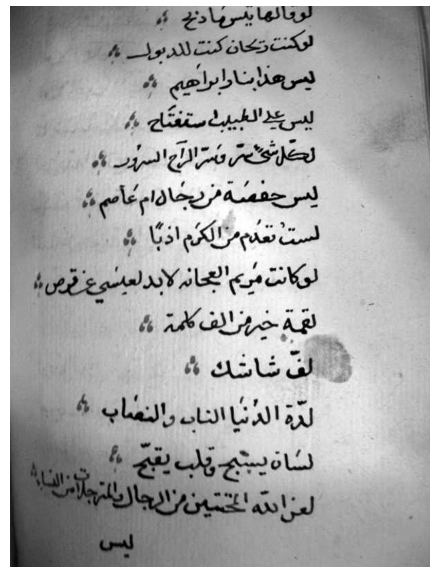 لو كنت ريحان كنت للدبول
ليس هذا بنار ابراهيم
ليس على الطبيب استفتاح
لكل شئ سر وسر الراح السرور
ليس حفصة من رجال ام عاصم
لست تعدم من الكرم اذبا
لو كانت مريم العجانه لا بد لعيسى عن قرص
لقمة خير من الف كلمة
لف شاشك
لذة الدنيا الناب والنصاب
لسان يسبح وقلب يقبح
لعن الله المخنثين من الرجال والمترجلات من النساء
ليس